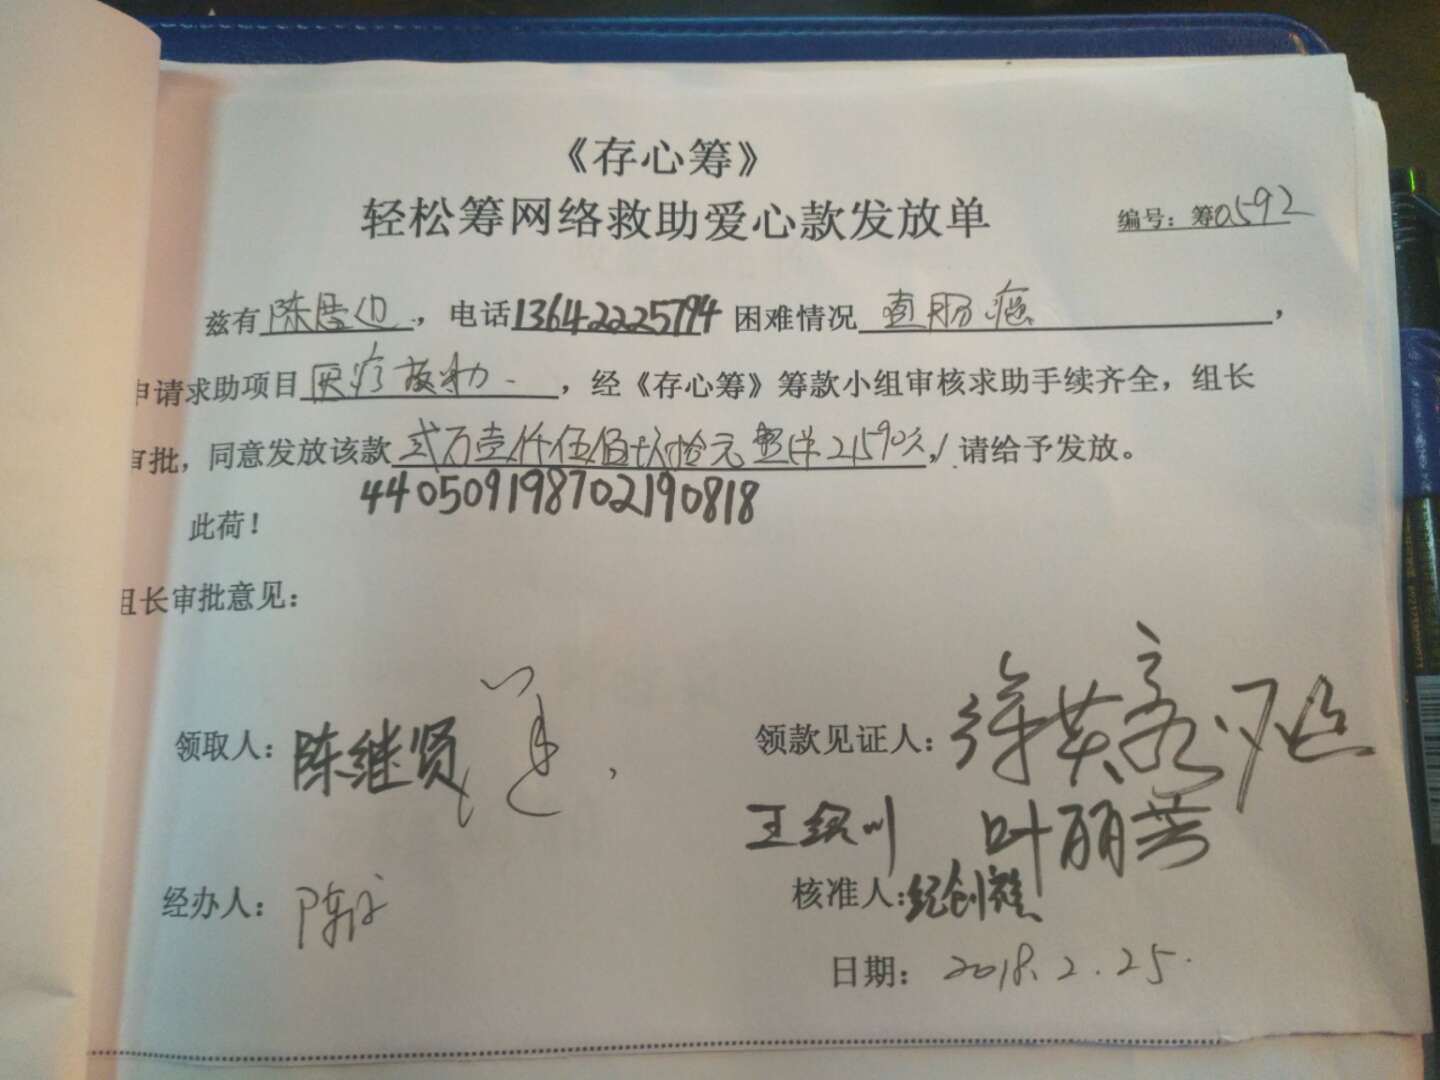 《存心筹》
轻松筹网络救助爱心款发放单
编号：筹0592
兹有陈, 电话13642225794 困难情况 直肠癌,
申请求助项目医疗救助, 经《存心筹》筹款小组审核求助手续齐全, 组长
审批, 同意发放该款贰万壹仟伍佰玖拾元整 21590元 请给予发放。
440509198702190818
此荷！
组长审批意见：
领取人：陈继贤
领款见证人：徐英
王绍川 叶丽芸
经办人：陈
核准人：纪创雄
日期：2018.2.25.